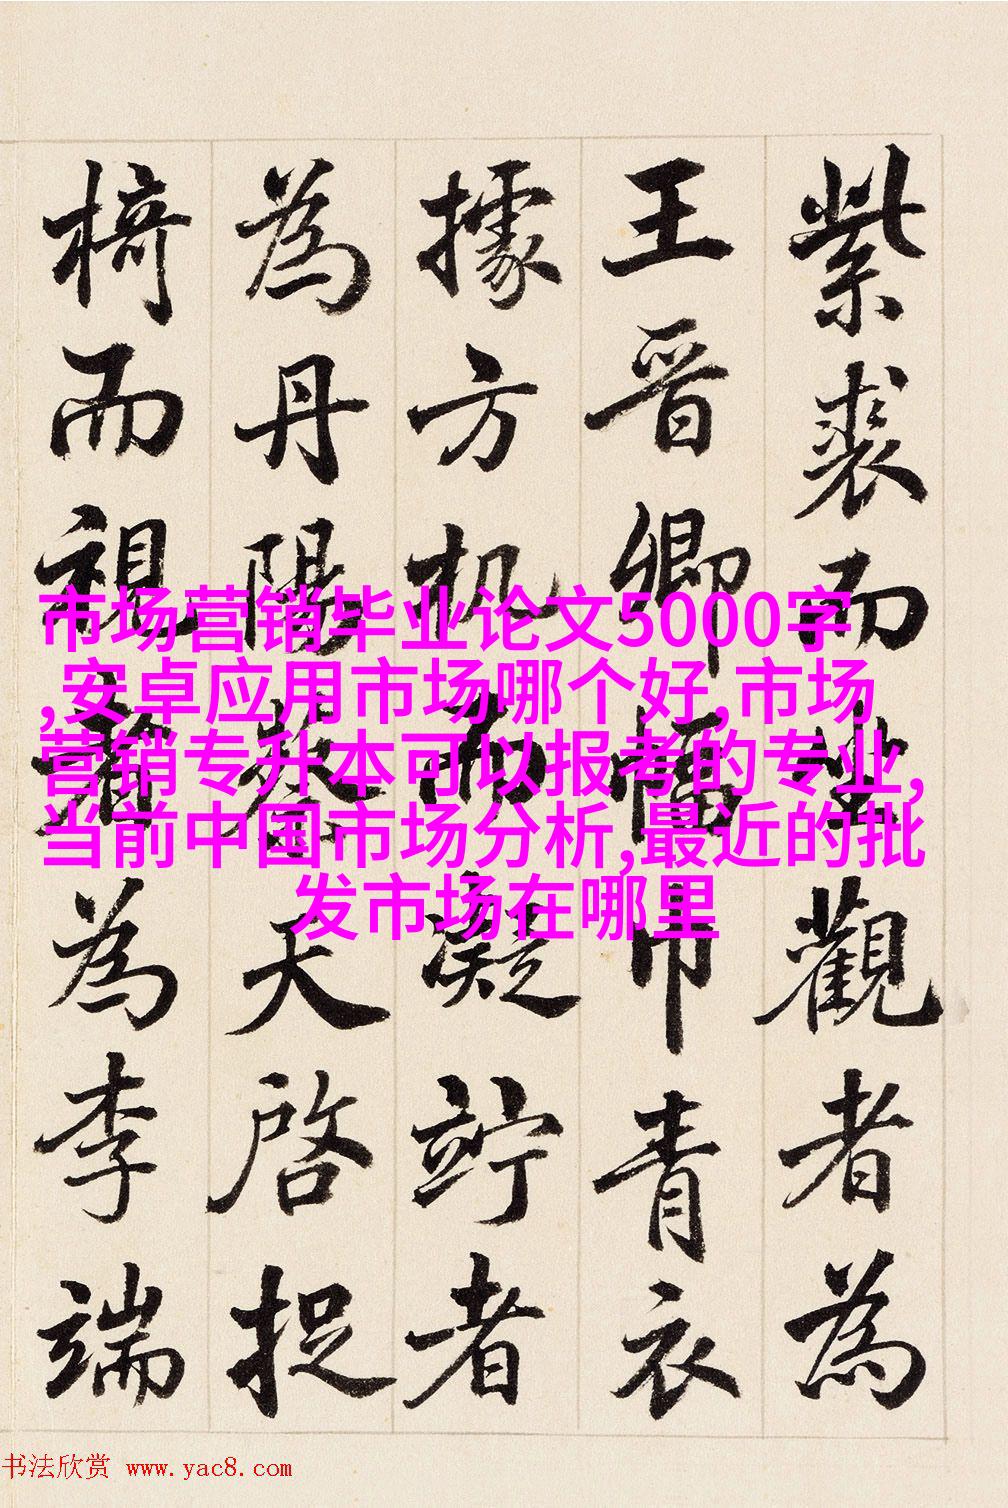 紫裘而坐觀者為
王晋卿幅巾青衣
據方机而凝竚者
為丹陽蔡天啓捉
椅而視者為李端
市场营销毕业论文5000字
,安卓应用市场哪个好,市场
营销专升本可以报考的专业,
当前中国市场分析,最近的批
发市场在哪里
书法欣赏 www.yac8.com